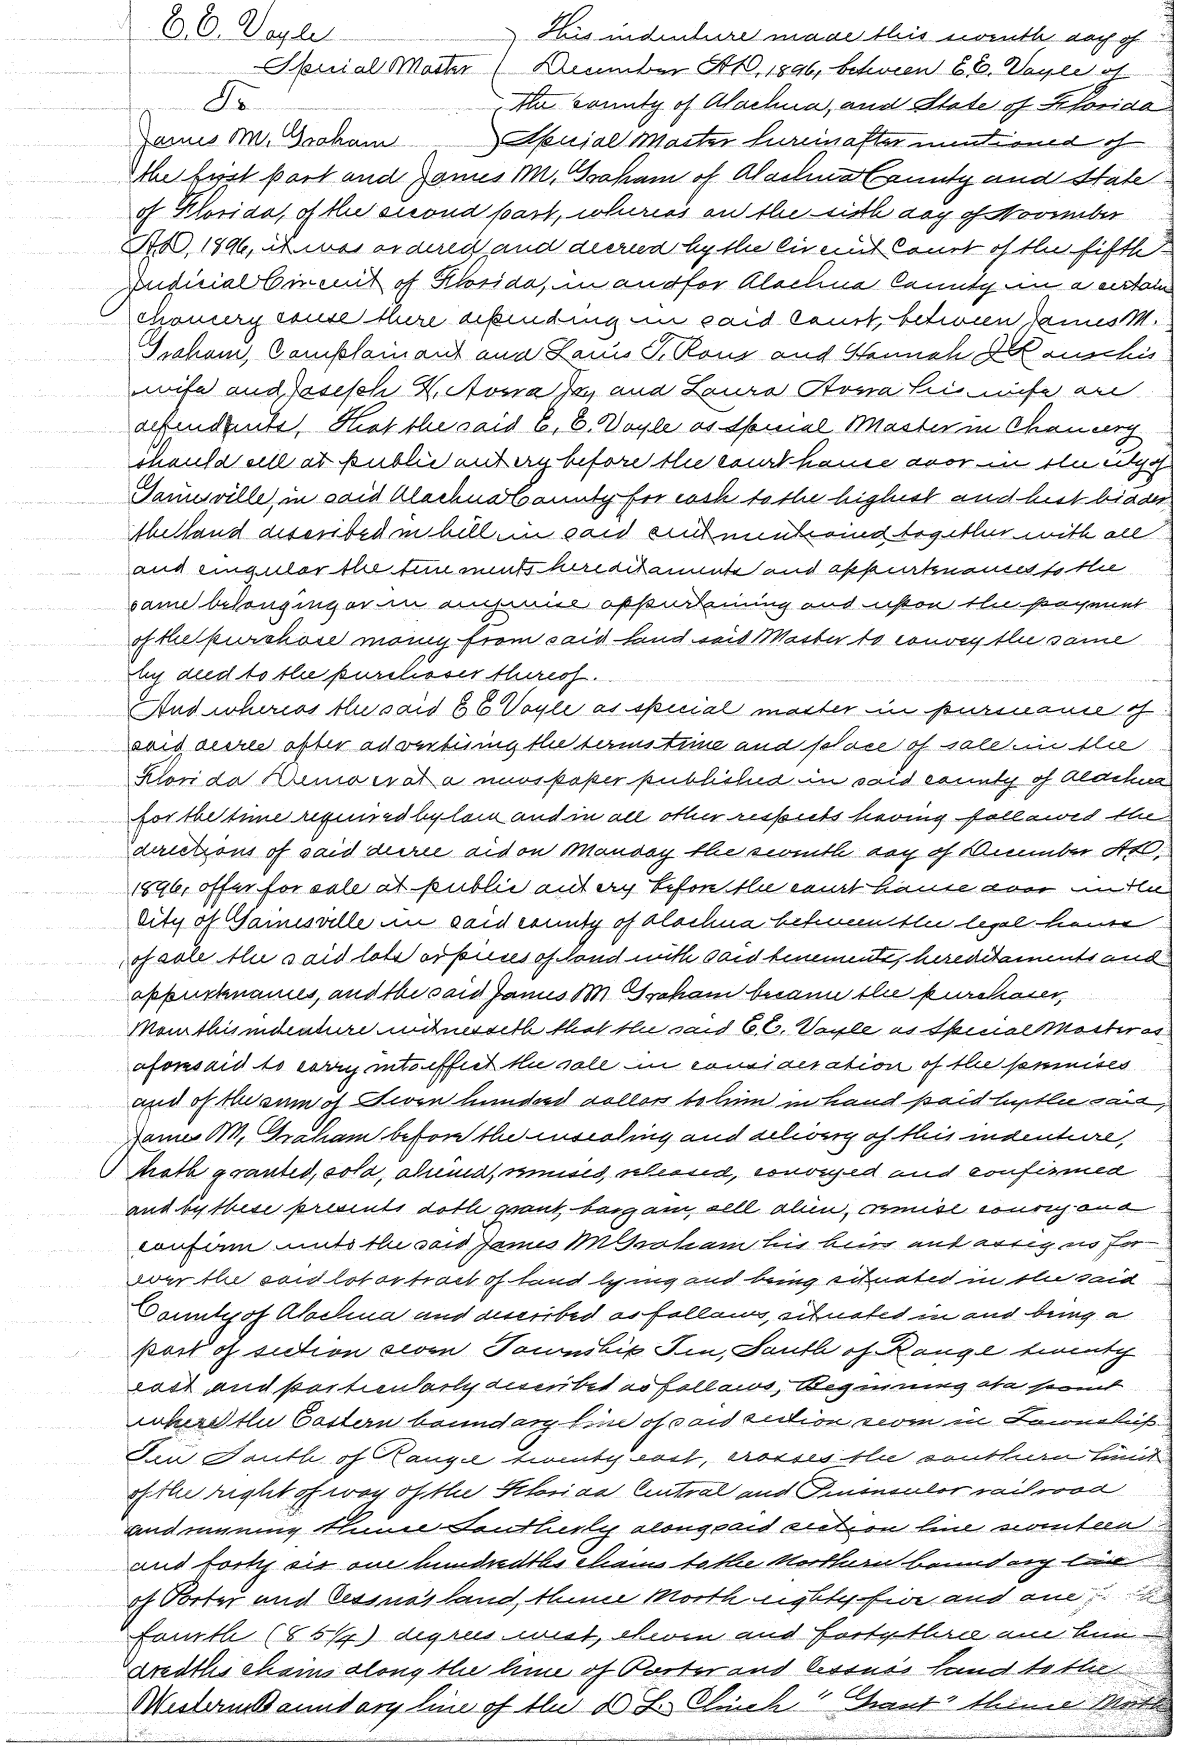 E. E. Voyle
Special Master
To
James M. Graham
This indenture made this seventh day of
December A.D. 1896, between E.E. Voyle of
the county of Alachua, and State of Florida
Special Master hereinafter mentioned of
the first part and James M. Graham of Alachua County and State
of Florida, of the second part, whereas on the sixth day of November
A.D. 1896, it was ordered and decreed by the Circuit Court of the fifth
Judicial Circuit of Florida, in and for Alachua County in a certain
chancery cause there depending in said Court, between James M.
Graham, Complainant and Louis T. Roux and Hannah J Roux his
wife and Joseph Jr, and Laura his wife are
defendants, That the said E. E. Voyle as Special Master in Chancery
should sell at public outcry before the court house door in the city of
Gainesville, in said Alachua County for cash to the highest and best bidder
the land described in bill in said suit mentioned, together with all
and singular the tenements hereditaments and appurtenances to the
same belonging or in anywise appurtaining and upon the payment
of the purchase money from said land said Master to convey the same
by deed to the purchaser thereof.
And whereas the said E E Voyle as special master in pursuance of
said decree after advertising the terms time and place of sale in the
Florida Democrat a newspaper published in said county of Alachua
for the time required by law and in all other respects having followed the
directions of said decree did on Monday the seventh day of December A.D.
1896, offer for sale at public outcry before the court house door in the
City of Gainesville in said county of Alachua between the legal hours
of sale the said lots or pieces of land with said tenements, hereditaments and
appurtenances, and the said James M Graham became the purchaser,
Now this indenture witnesseth that the said E.E. Voyle as Special Master as
aforesaid to carry into effect the sale in consideration of the premises
and of the sum of Seven hundred dollars to him in hand paid by the said,
James M. Graham before the ensealing and delivery of this indenture,
hath granted, sold, aliened, remised, released, conveyed and confirmed
and by these presents doth grant, bargain, sell alien, remise convey and
confirm unto the said James M Graham his heirs and assigns for
ever the said lot or tract of land lying and being situated in the said
County of Alachua and described as follows, situated in and being a
part of section seven Township Ten, South of Range twenty
east and particularly described as follows, Beginning at a point
where the Eastern boundary line of said section seven in Township
Ten South of Range twenty east, crosses the southern limit
of the right of way of the Florida Central and Peninsular railroad
and running thence Southerly along said section line seventeen
and forty six one hundredths chains to the Northern boundary line
of Porter and Cessna's land, thence North eighty five and one
fourth (85 1/4) degrees west, eleven and forty three one hun
dredths chains along the line of Porter and Cessna's land to the
Western Boundary line of the D L. Clinch "Grant" thence North